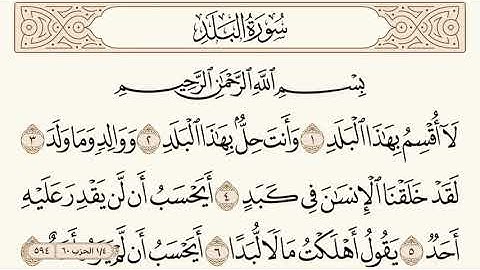 سُورَةُ الْبَلَدِ
بِسْمِ اللَّهِ الرَّحْمَٰنِ الرَّحِيمِ
لَا أُقْسِمُ بِهَٰذَا الْبَلَدِ ١ وَأَنتَ حِلٌّ بِهَٰذَا الْبَلَدِ ٢ وَوَالِدٍ وَمَا وَلَدَ ٣
لَقَدْ خَلَقْنَا الْإِنسَانَ فِي كَبَدٍ ٤ أَيَحْسَبُ أَن لَّن يَقْدِرَ عَلَيْهِ
أَحَدٌ ٥ يَقُولُ أَهْلَكْتُ مَالًا لُّبَدًا ٦ أَيَحْسَبُ أَن لَّمْ
١/٤ الحزب ٦٠ ٥٩٤